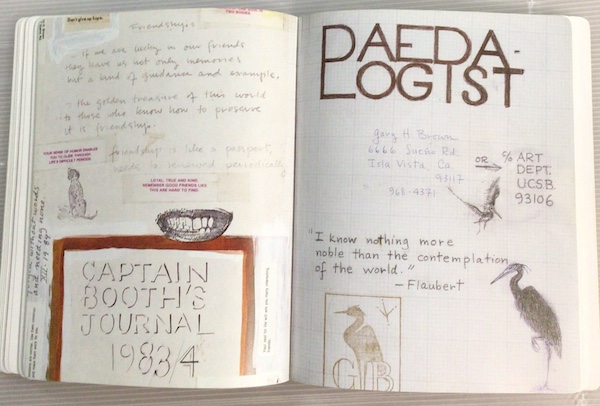 Don't give up hope.
Friendships
if we are lucky in our friends
they have us not only memories
but a kind of guidance and example.
the golden treasure of this world
to those who know how to preserve
it is friendship.
friendship is like a passport,
needs to renewed periodically
YOUR SENSE OF HUMOR ENABLES
YOU TO CLIMB THROUGH
LIFE'S DIFFICULT PERIODS.
LOYAL, TRUE AND KIND,
REMEMBER GOOD FRIENDS LIKE
THIS ARE HARD TO FIND.
without words
and needing none.
CAPTAIN
BOOTH'S
JOURNAL
1983/4
DAEDA-
LOGIST
Gary H. Brown
6666 Sueño Rd.
Isla Vista, Ca.
93117
968-4371
OR → c/o ART
DEPT.
UCSB
93106
"I know nothing more
noble than the contemplation
of the world."
— Flaubert
GHB